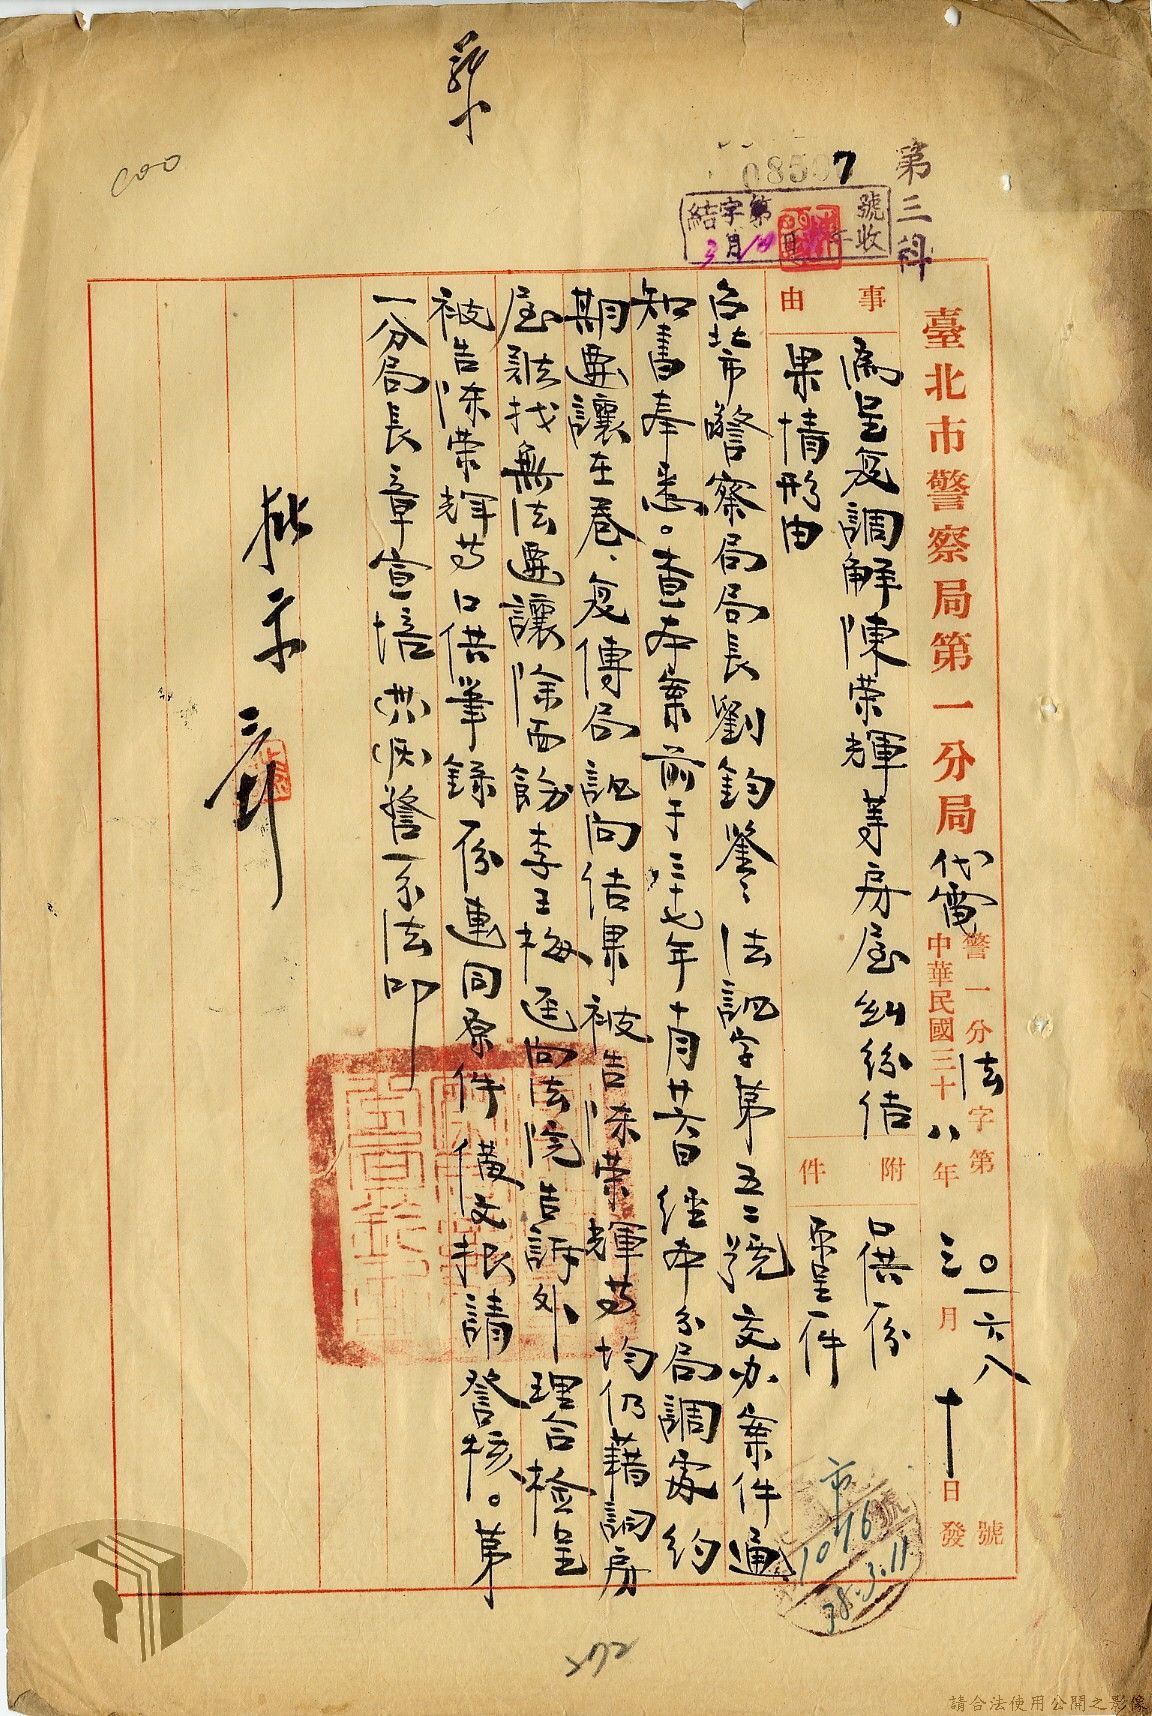 第三科
08507
結字第 號
3月10日 年收
臺北市警察局第一分局代電
警一分法字第〇一六八號
中華民國三十八年三月十日發
事由
為呈复調解陳荣輝等房屋糾紛结
果情形由
附件
口供一份
原呈一件
台北市警察局局長劉鈞鑒法訊字第五二號交办案件通
知書奉悉。查本案前于三十七年十月廿六日經本分局調處約
期遷讓在卷、复傳局訊问结果被告陈荣輝等均仍藉詞房
屋難找無法遷讓除面飭李王梅逕向法院告訴外理合檢呈
被告陈荣輝等口供筆錄一份連同原件備文报請詧核。第
一分局長章宣培 警一分法叩
擬示
市
1076
38.3.11
272
請合法使用公開之影像